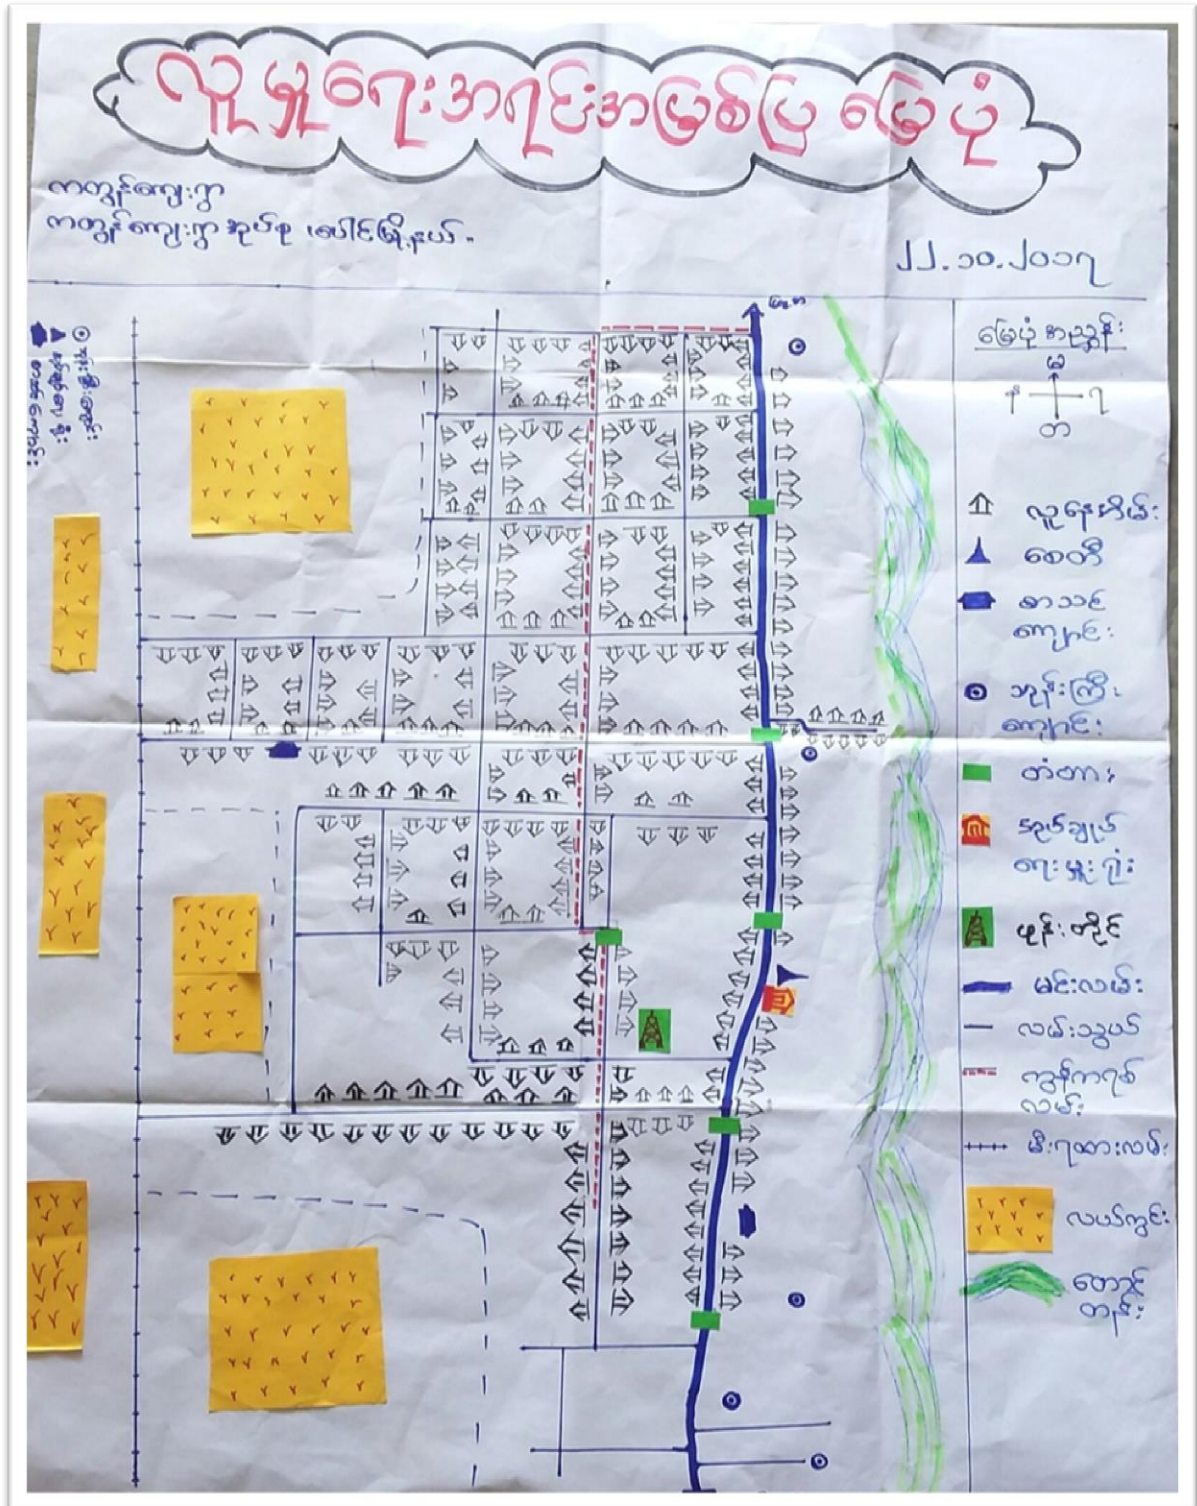 လူမှုရေးအရင်းအမြစ်ပြ မြေပုံ
ကတွန်ကျေးရွာ
ကတွန်ကျေးရွာ အုပ်စု ၊ ပေါင်မြို့နယ် ။
၂၂.၁၀.၂၀၁၇
မြေပုံ အညွှန်း
မ
န
ရ
တ
လူနေအိမ်
စေတီ
စာသင်
ကျောင်း
ဘုန်းကြီး
ကျောင်း
တံတား
အုပ်ချုပ်
ရေးမှူးရုံး
ဖုန်းတိုင်
မင်းလမ်း
လမ်းသွယ်
ကွန်ကရစ်
လမ်း
မီးရထားလမ်း
လယ်ကွင်း
တောင်
တန်း